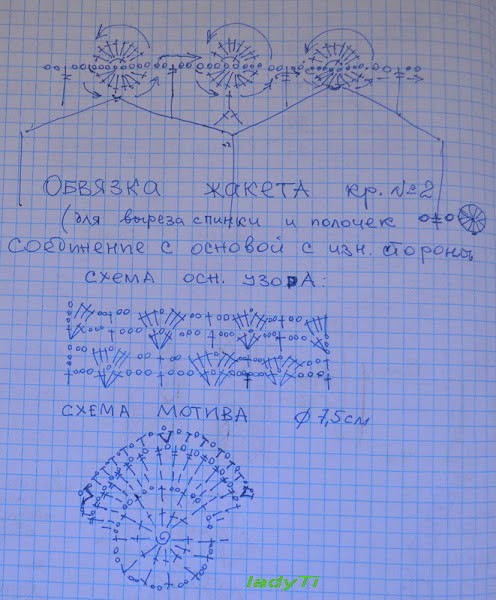 ОБВЯЗКА ЖАКЕТА кр. №2
(для выреза спинки и полочек
соединение с основой с изн. стороны
СХЕМА ОСН. УЗОРА:
СХЕМА МОТИВА Ø 7,5см
ladyTi